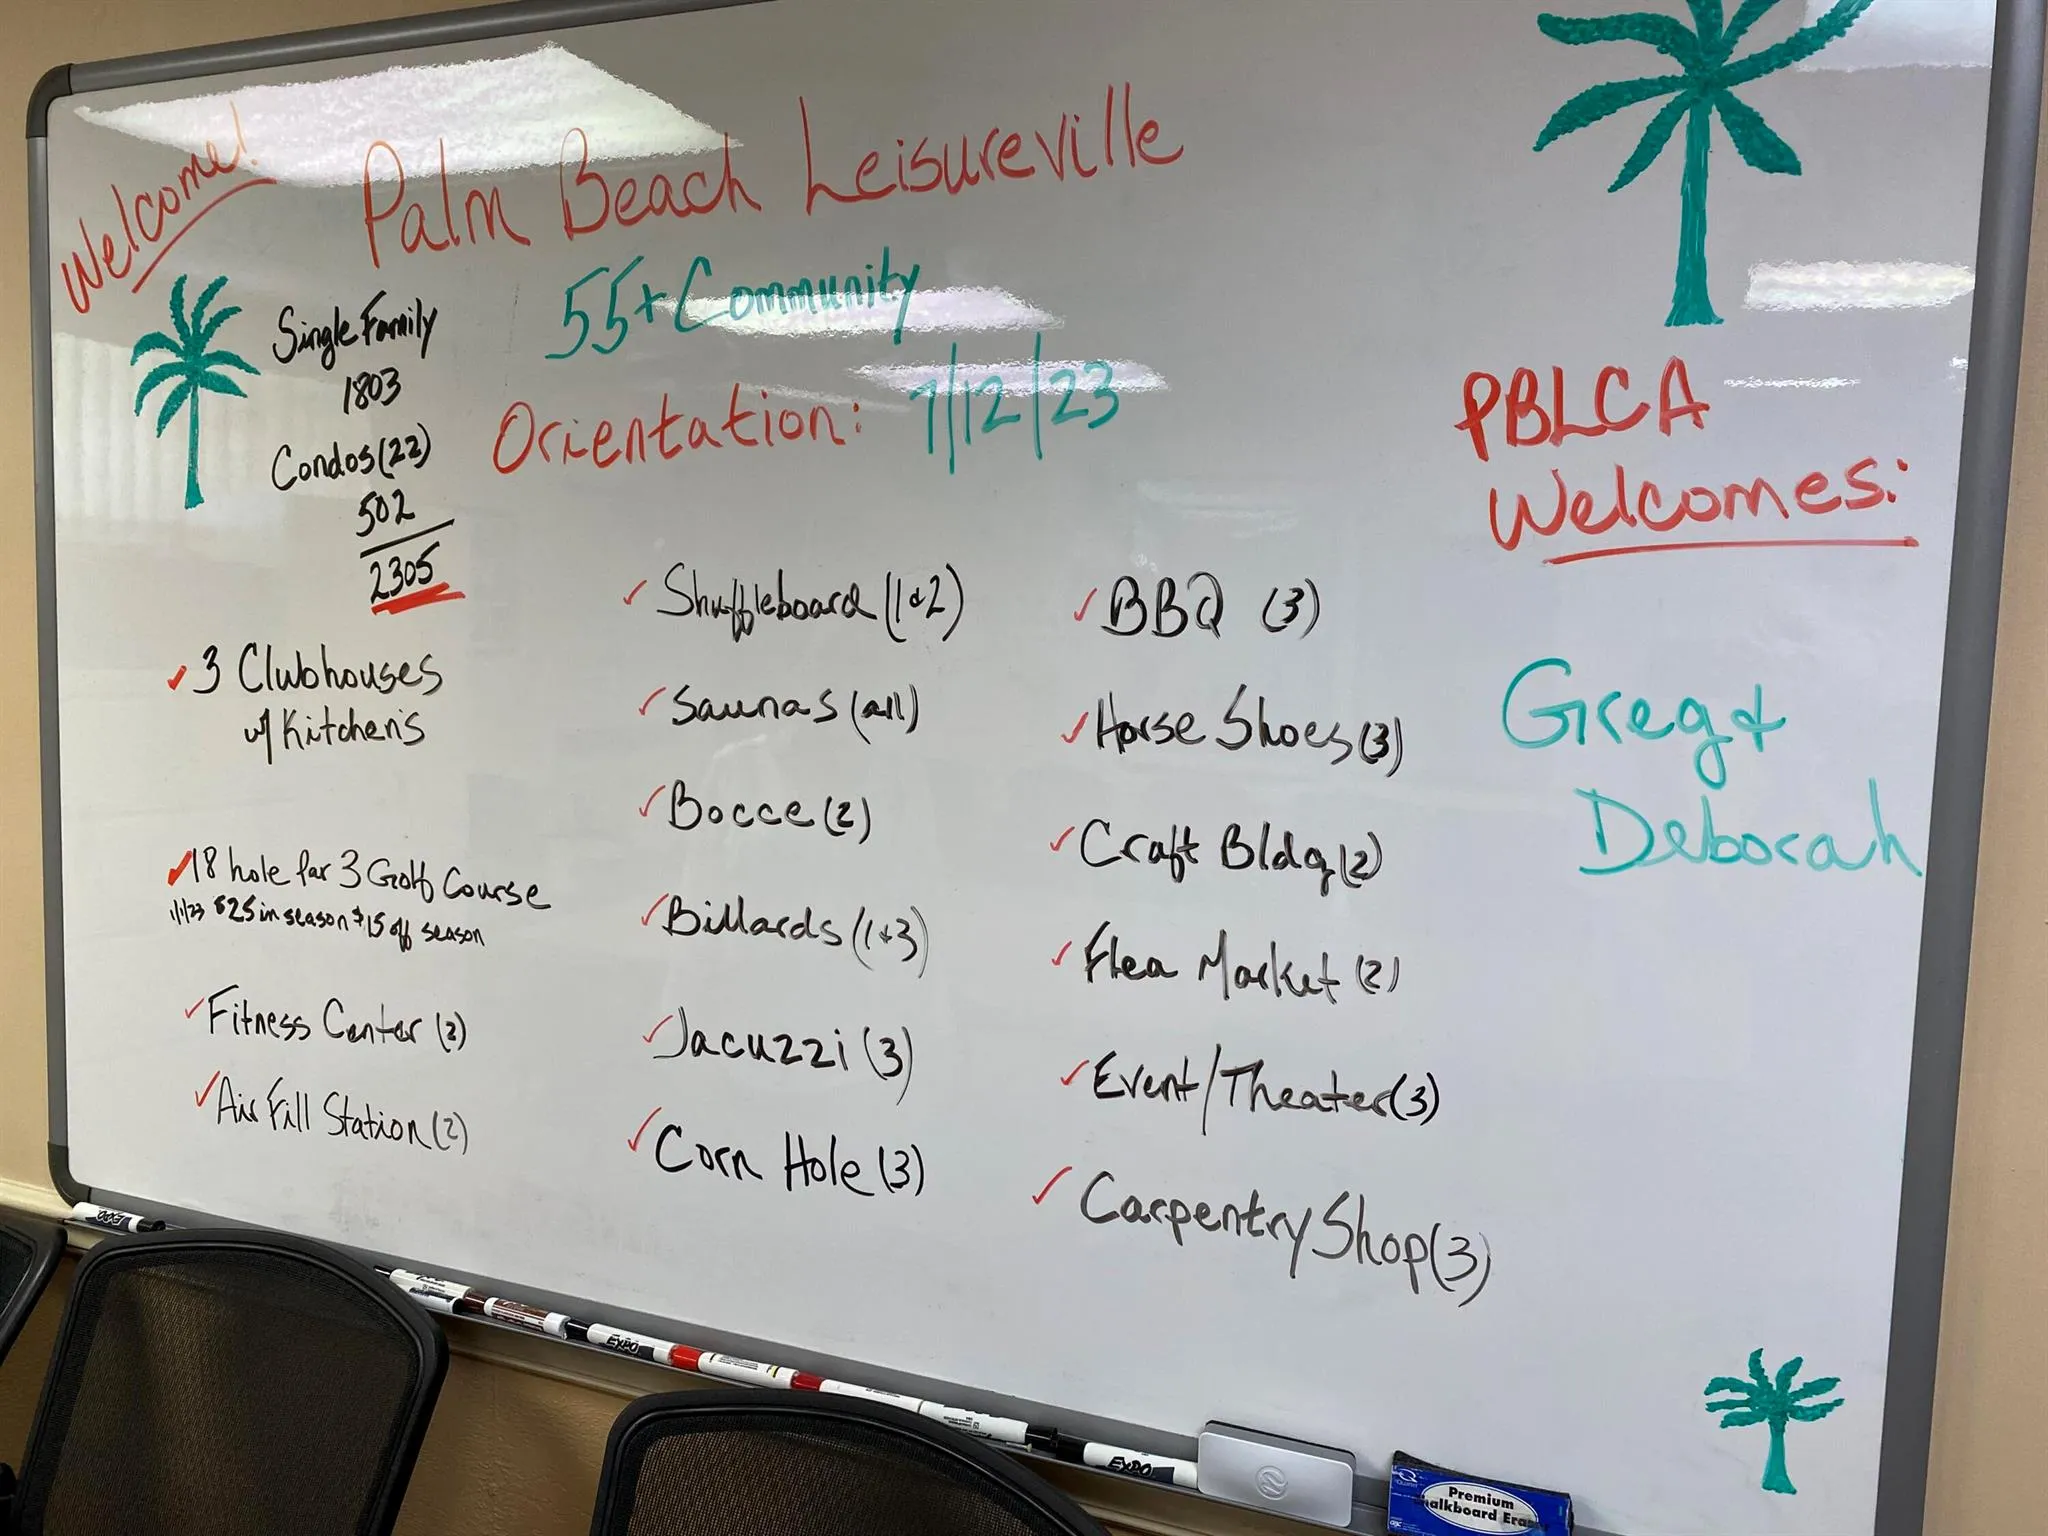 Welcome!
Palm Beach Leisureville
55+ Community
Orientation: 7/12/23
Single Family
1803
Condos (22)
502
2305
✓ 3 Clubhouses
w/ Kitchen's
✓ 18 hole par 3 Golf Course
1/1/23 $25 in season $15 off season
✓ Fitness Center (2)
✓ Air Fill Station (2)
✓ Shuffleboard (1 & 2)
✓ Saunas (all)
✓ Bocce (2)
✓ Billards (1 & 3)
✓ Jacuzzi (3)
✓ Corn Hole (3)
✓ BBQ (3)
✓ Horse Shoes (3)
✓ Craft Bldg (2)
✓ Flea Market (2)
✓ Event/Theater (3)
✓ Carpentry Shop (3)
PBLCA
Welcomes:
Greg &
Deborah
EXPO
EXPO
Premium
Chalkboard Eraser